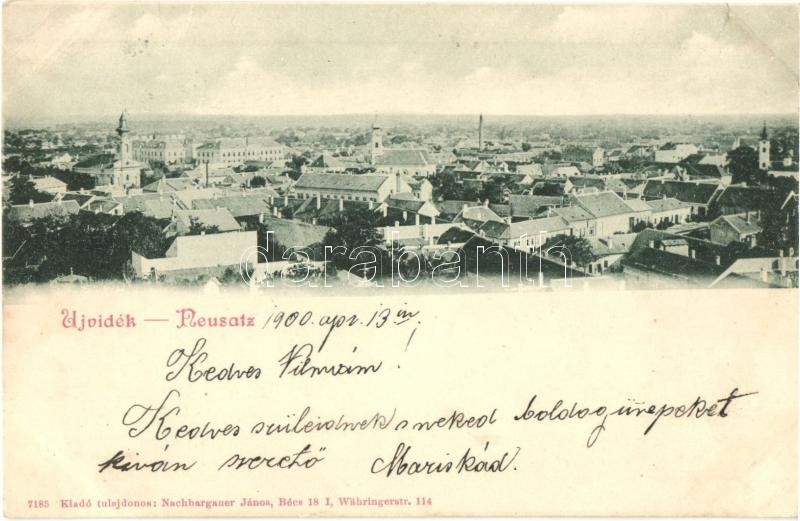 darabanth
Ujvidék — Neusatz 1900. apr. 13 in
Kedves Vilmám!
Kedves szüleidnek s neked boldog ünnepeket
kiván szerető Mariskád.
7185 Kiadó tulajdonos: Nachbargauer János, Bécs 18 I, Währingerstr. 114